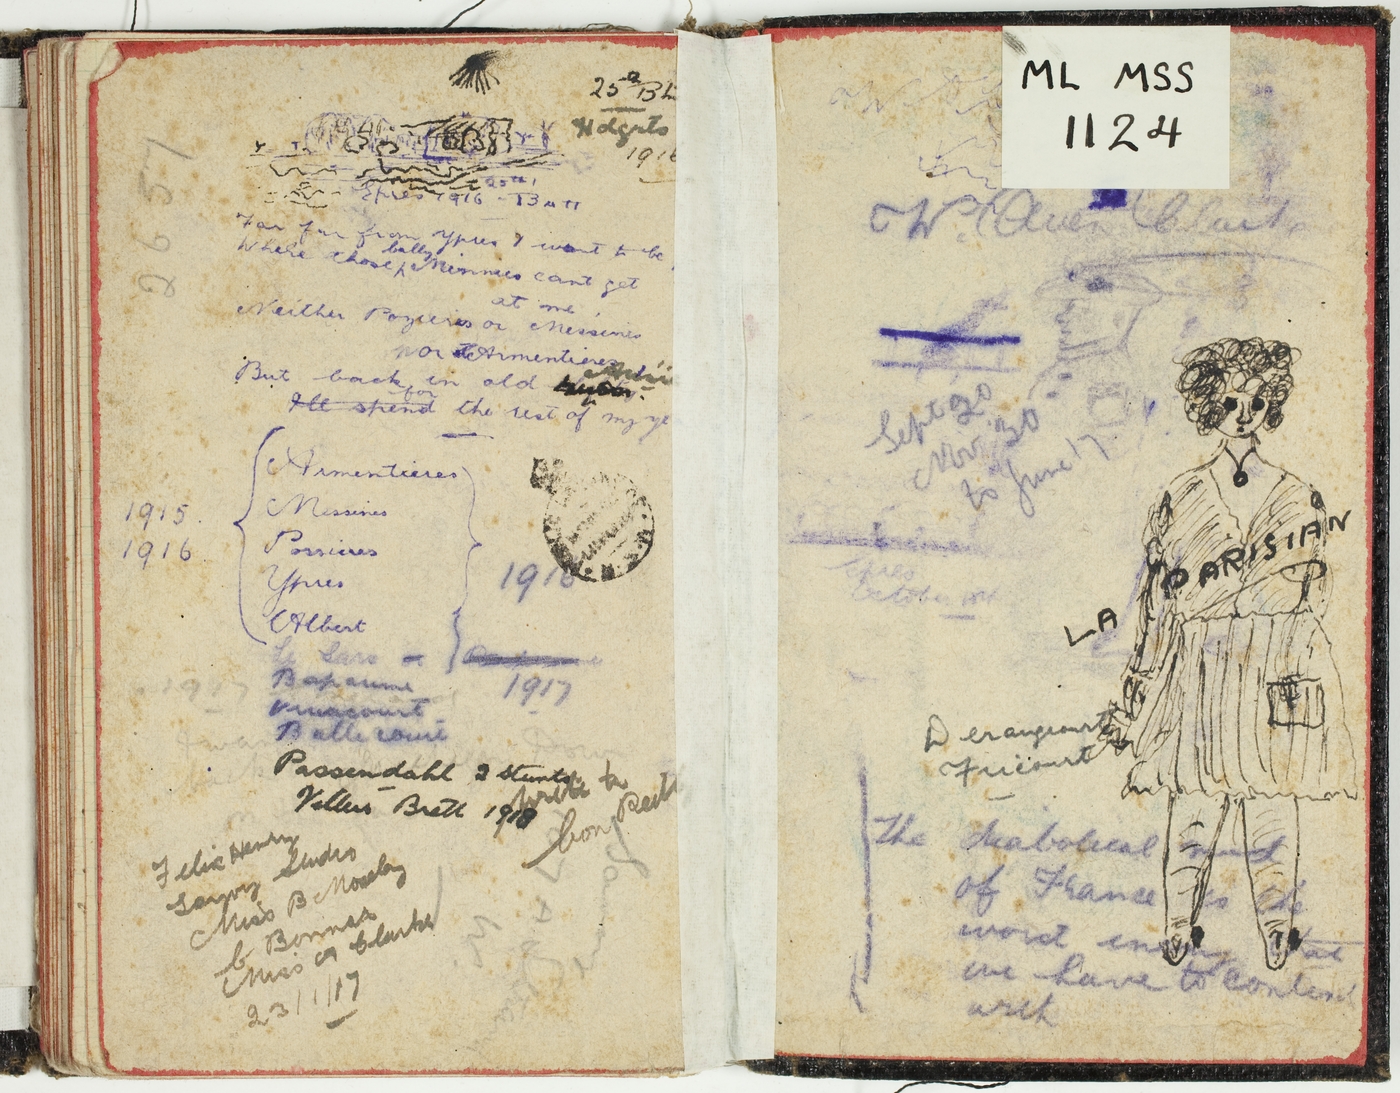 25th Bt
Hdqrts
1916
2657
Ypres 1916 - 25th Batt
Far far from Ypres I want to be,
Where those bally Minnies cant get
at me,
Neither Pozieres or Messines
nor Armentieres
But back in old
I'll spend for the rest of my ye
Armentieres
1915
Messines
1916
Possieres
Ypres
1916
Albert
Le Sars
Bapaume
1917
1917
Vinacourt
Bullecourt
Passendahl 2 stunts
Villers Brett 1918
write to
Felix Henry
Savoy Studio
Miss B Moseley
C. Bonnar
Miss A Clarke
23/1/17
ML MSS
1124
W. Owen Clark
Sept 20
Nov. 30
to June 17
Ypres
October
LA PARISIAN
Derangcourt
Fricourt
The diabolical mud
of France is the
worst enemy that
we have to contend
with